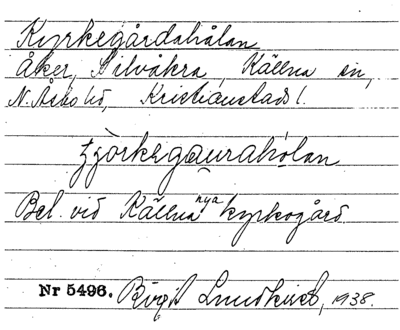 Kyrkegårdahålan
Åker, Silvåkra, Källna sn,
N. Åsbo hd, Kristianstads l.
tjörkegauraholan
Bel. vid Källna nya kyrkogård
Nr 5496. Birgit Lundkvist, 1938.